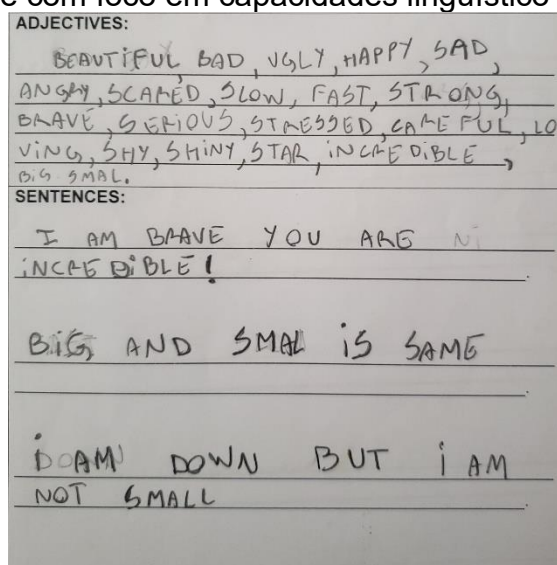 e com foco em capacidades linguístico
ADJECTIVES:
BEAUTIFUL, BAD, UGLY, HAPPY, SAD,
ANGRY, SCARED, SLOW, FAST, STRONG,
BRAVE, SERIOUS, STRESSED, CAREFUL, LO
VING, SHY, SHINY, STAR, INCREDIBLE,
BIG SMAL.
SENTENCES:
I AM BRAVE YOU ARE
INCREDIBLE!
BIG AND SMAL IS SAME
DOWN BUT I AM
NOT SMALL